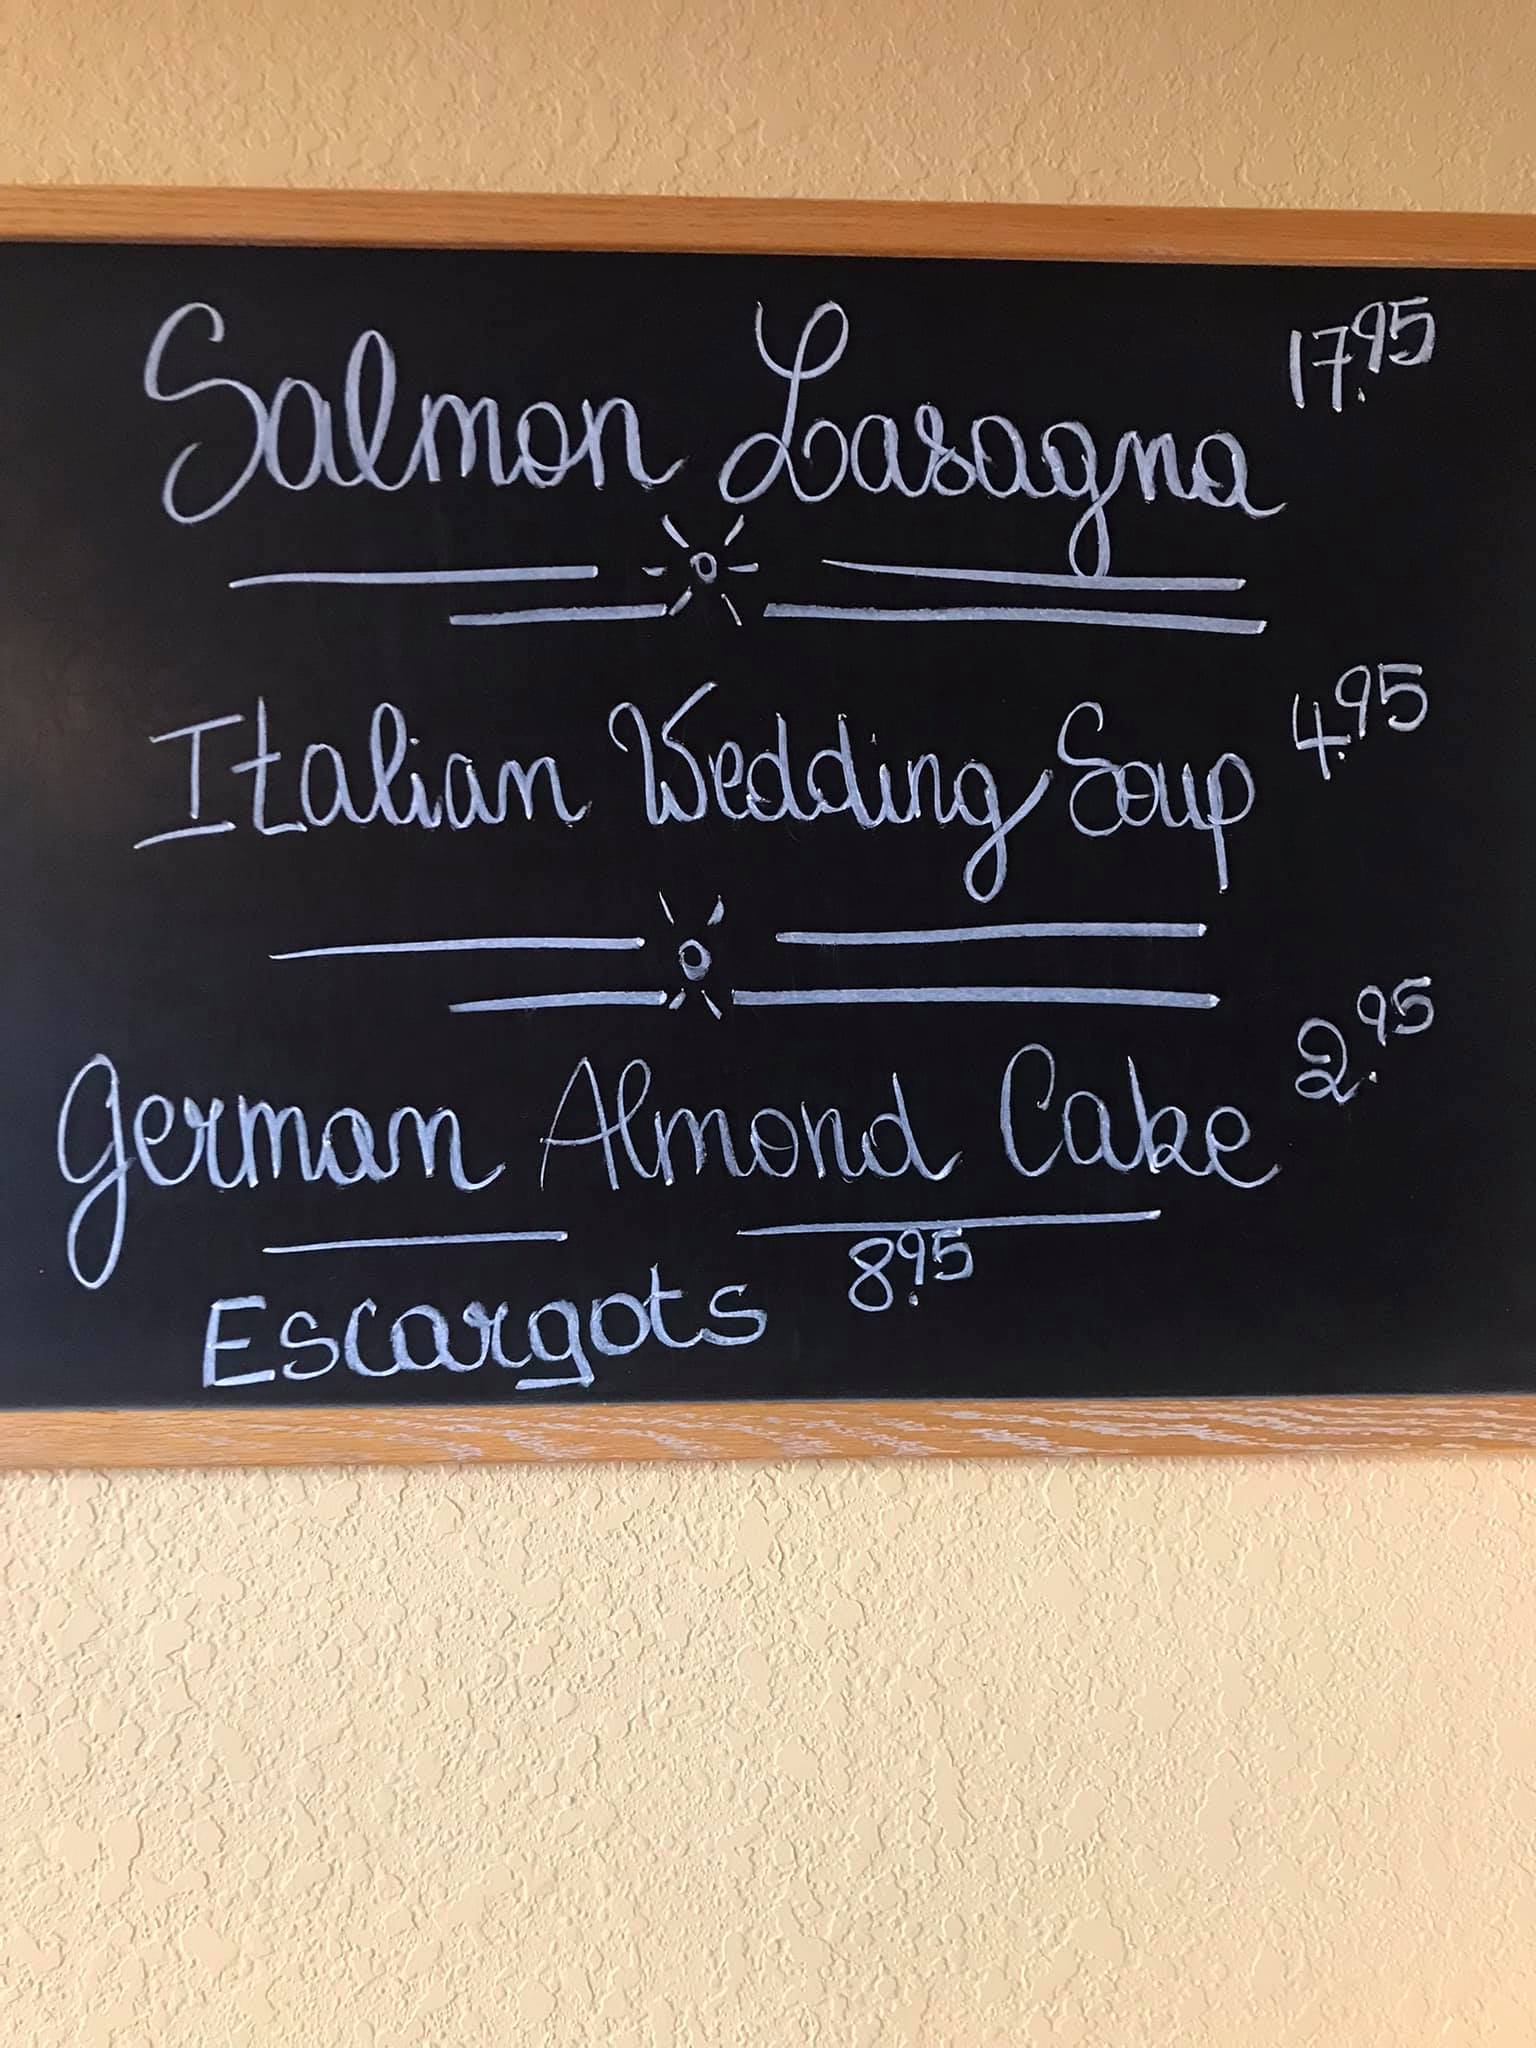 Salmon Lasagna 17.95
Italian Wedding Soup 4.95
German Almond Cake 2.95
Escargots 8.95